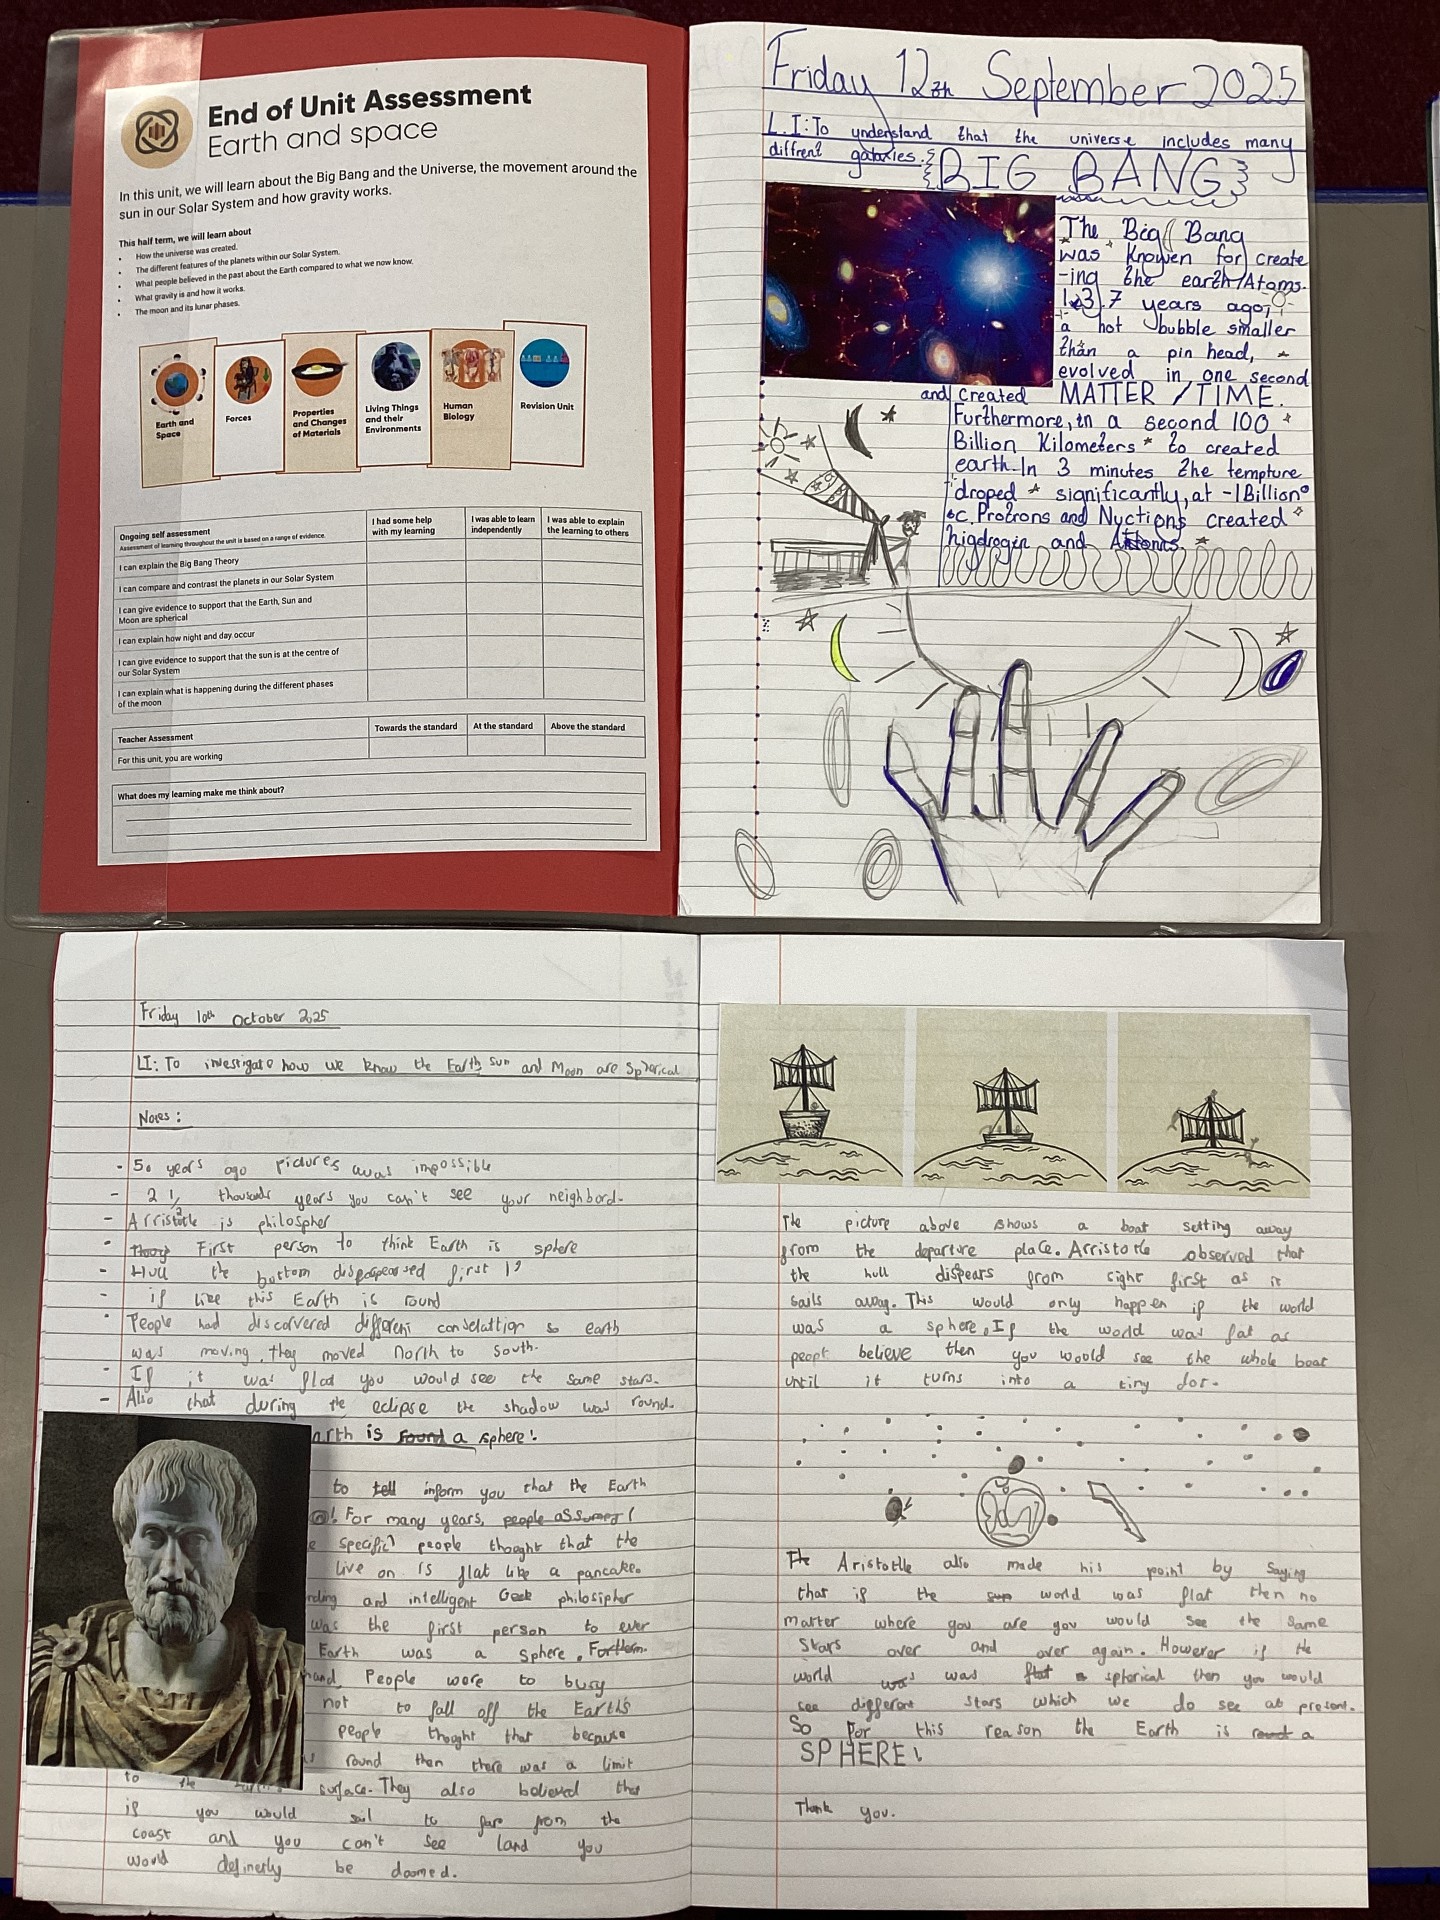 End of Unit Assessment
Earth and space
In this unit, we will learn about the Big Bang and the Universe, the movement around the
sun in our Solar System and how gravity works.
This half term, we will learn about
• How the universe was created.
• The different features of the planets within our Solar System.
• What people believed in the past about the Earth compared to what we now know.
• What gravity is and how it works.
• The moon and its lunar phases.
Earth and
Space
Forces
Properties
and Changes
of Materials
Living Things
and their
Environments
Human
Biology
Revision Unit
Ongoing self assessment
Assessment of learning throughout the unit is based on a range of evidence.
I had some help
with my learning
I was able to learn
independently
I was able to explain
the learning to others
I can explain the Big Bang Theory
I can compare and contrast the planets in our Solar System
I can give evidence to support that the Earth, Sun and
Moon are spherical
I can explain how night and day occur
I can give evidence to support that the sun is at the centre of
our Solar System
I can explain what is happening during the different phases
of the moon
Teacher Assessment
Towards the standard
At the standard
Above the standard
For this unit, you are working
What does my learning make me think about?
Friday 12th September 2025
L.I: To understand that the universe includes many
diffrent galaxies.
BIG BANG
The Big Bang
was knowen for create
-ing the earth/Atoms.
13.7 years ago,
a hot bubble smaller
than a pin head,
evolved in one second
and created MATTER / TIME.
Furthermore, in a second 100
Billion Kilometers to created
earth. In 3 minutes the tempture
droped significantly, at -1Billion°
°c. Protrons and Nyctions created
higdrogin and Attoms.
Friday 10th October 2025
LI: To investigate how we know the Earth sun and Moon are Spherical
Notes:
- 50 years ago pictures was impossible
- 2 1/2 thousands years you can't see your neighbord.
- Arristotle is philospher
- First person to think Earth is sphere
- Hull the bottom disapeassed first 1?
- if like this Earth is round
- People had discorvered different conselattion so earth
was moving. they moved north to south.
- If it was flat you would see the same stars.
- Also that during the eclipse the shadow was round.
arth is round a sphere!
to tell inform you that the Earth
! For many years, people assumed
specific people thought that the
live on is flat like a pancake.
nding and intelligent Geek philosipher
was the first person to ever
Earth was a sphere. Forthem.
and People were to busy
not to fall off the Earth's
people thought that because
round then there was a limit
to the surface. They also believed that
if you would sail to far from the
coast and you can't see land you
would definertly be doomed.
The picture above shows a boat setting away
from the departure place. Arristotle observed that
the hull dispears from sight first as it
sails away. This would only happen if the world
was a sphere. If the world was fat as
peopl believe then you woold see the whole boat
until it turns into a tiny dor.
The Aristotle also made his point by saying
that if the sun world was flat then no
matter where you are you would see the same
stars over and over again. However if the
world was was flat a spherical then you would
see different stars which we do see at present.
So for this reason the Earth is round a
SPHERE!
Thank you.